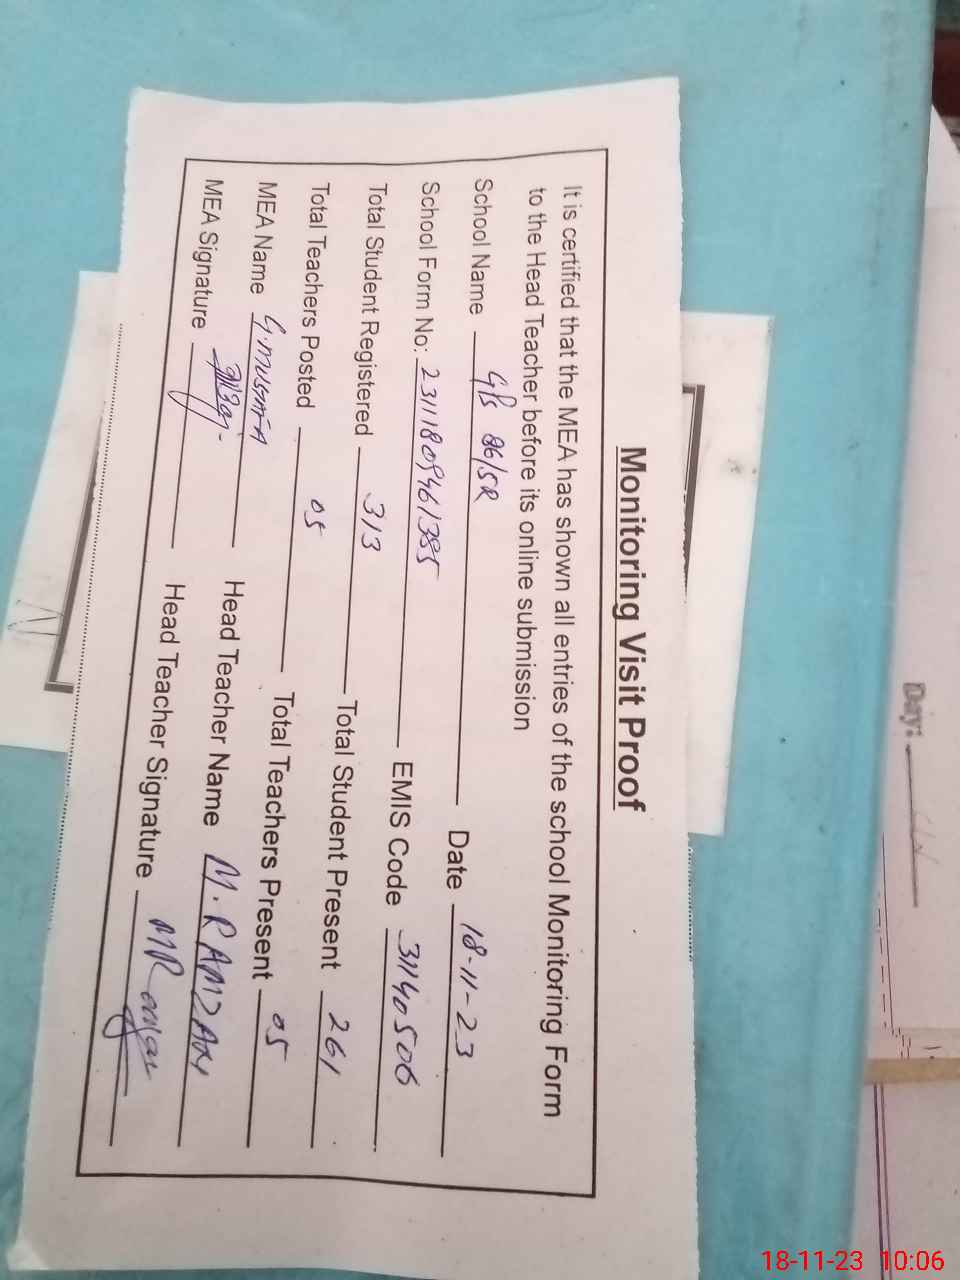 Monitoring Visit Proof
It is certified that the MEA has shown all entries of the school Monitoring Form
to the Head Teacher before its online submission
School Name G/Ps 86/5R Date 18-11-23
School Form No: 23111809461385 EMIS Code 31140506
Total Student Registered 313 Total Student Present 261
Total Teachers Posted 05 Total Teachers Present 05
MEA Name G.MUSTAFA Head Teacher Name M.RAMZAN
MEA Signature Head Teacher Signature
Day:
18-11-23 10:06